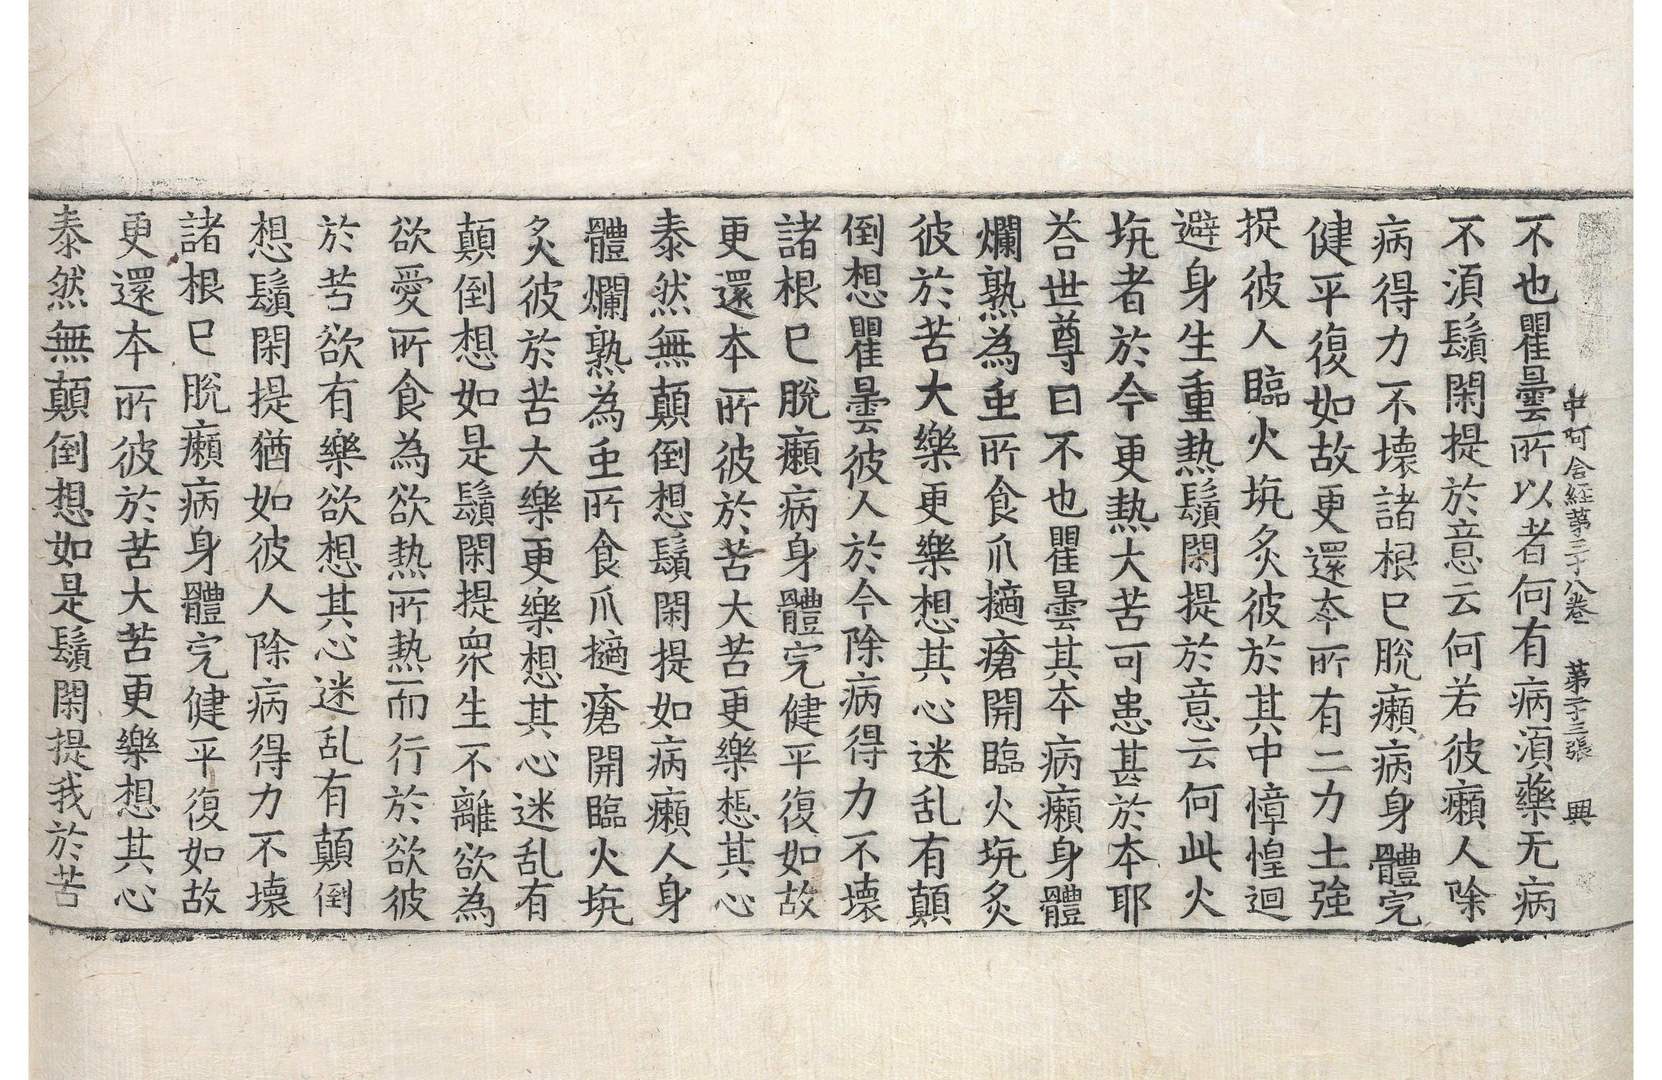 中阿含經第三十八卷 第十三張 興
不也瞿曇所以者何有病湏藥无病
不湏鬚閑提於意云何若彼癩人除
病得力不壞諸根已脫癩病身體完
健平復如故更還夲所有二力士強
捉彼人臨火坑炙彼於其中慞惶迴
避身生重熱鬚閑提於意云何此火
坑者於今更熱大苦可患甚於夲耶
荅世尊曰不也瞿曇其夲病癩身體
爛熟為䖝所食爪擿瘡開臨火坑炙
彼於苦大樂更樂想其心迷乱有顛
倒想瞿曇彼人於今除病得力不壞
諸根已脫癩病身體完健平復如故
更還夲所彼於苦大苦更樂想其心
泰然無顛倒想鬚閑提如病癩人身
體爛熟為䖝所食爪擿瘡開臨火坑
炙彼於苦大樂更樂想其心迷乱有
顛倒想如是鬚閑提衆生不離欲為
欲愛所食為欲熱所熱而行於欲彼
於苦欲有樂欲想其心迷乱有顛倒
想鬚閑提猶如彼人除病得力不壞
諸根已脫癩病身體完健平復如故
更還夲所彼於苦大苦更樂想其心
泰然無顛倒想如是鬚閑提我於苦